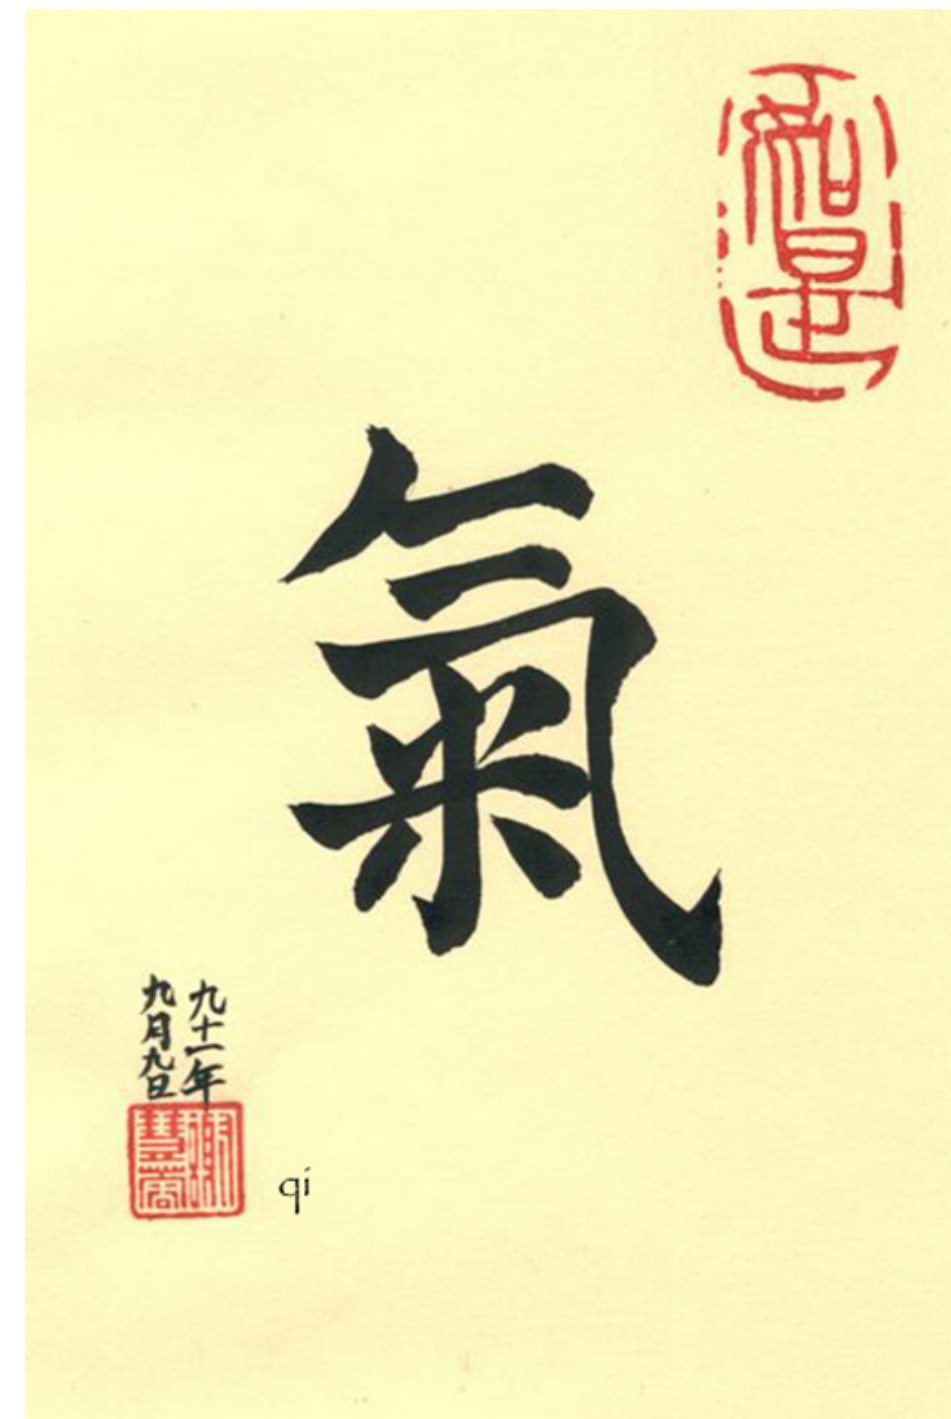 氣
九十一年
九月九日
qi